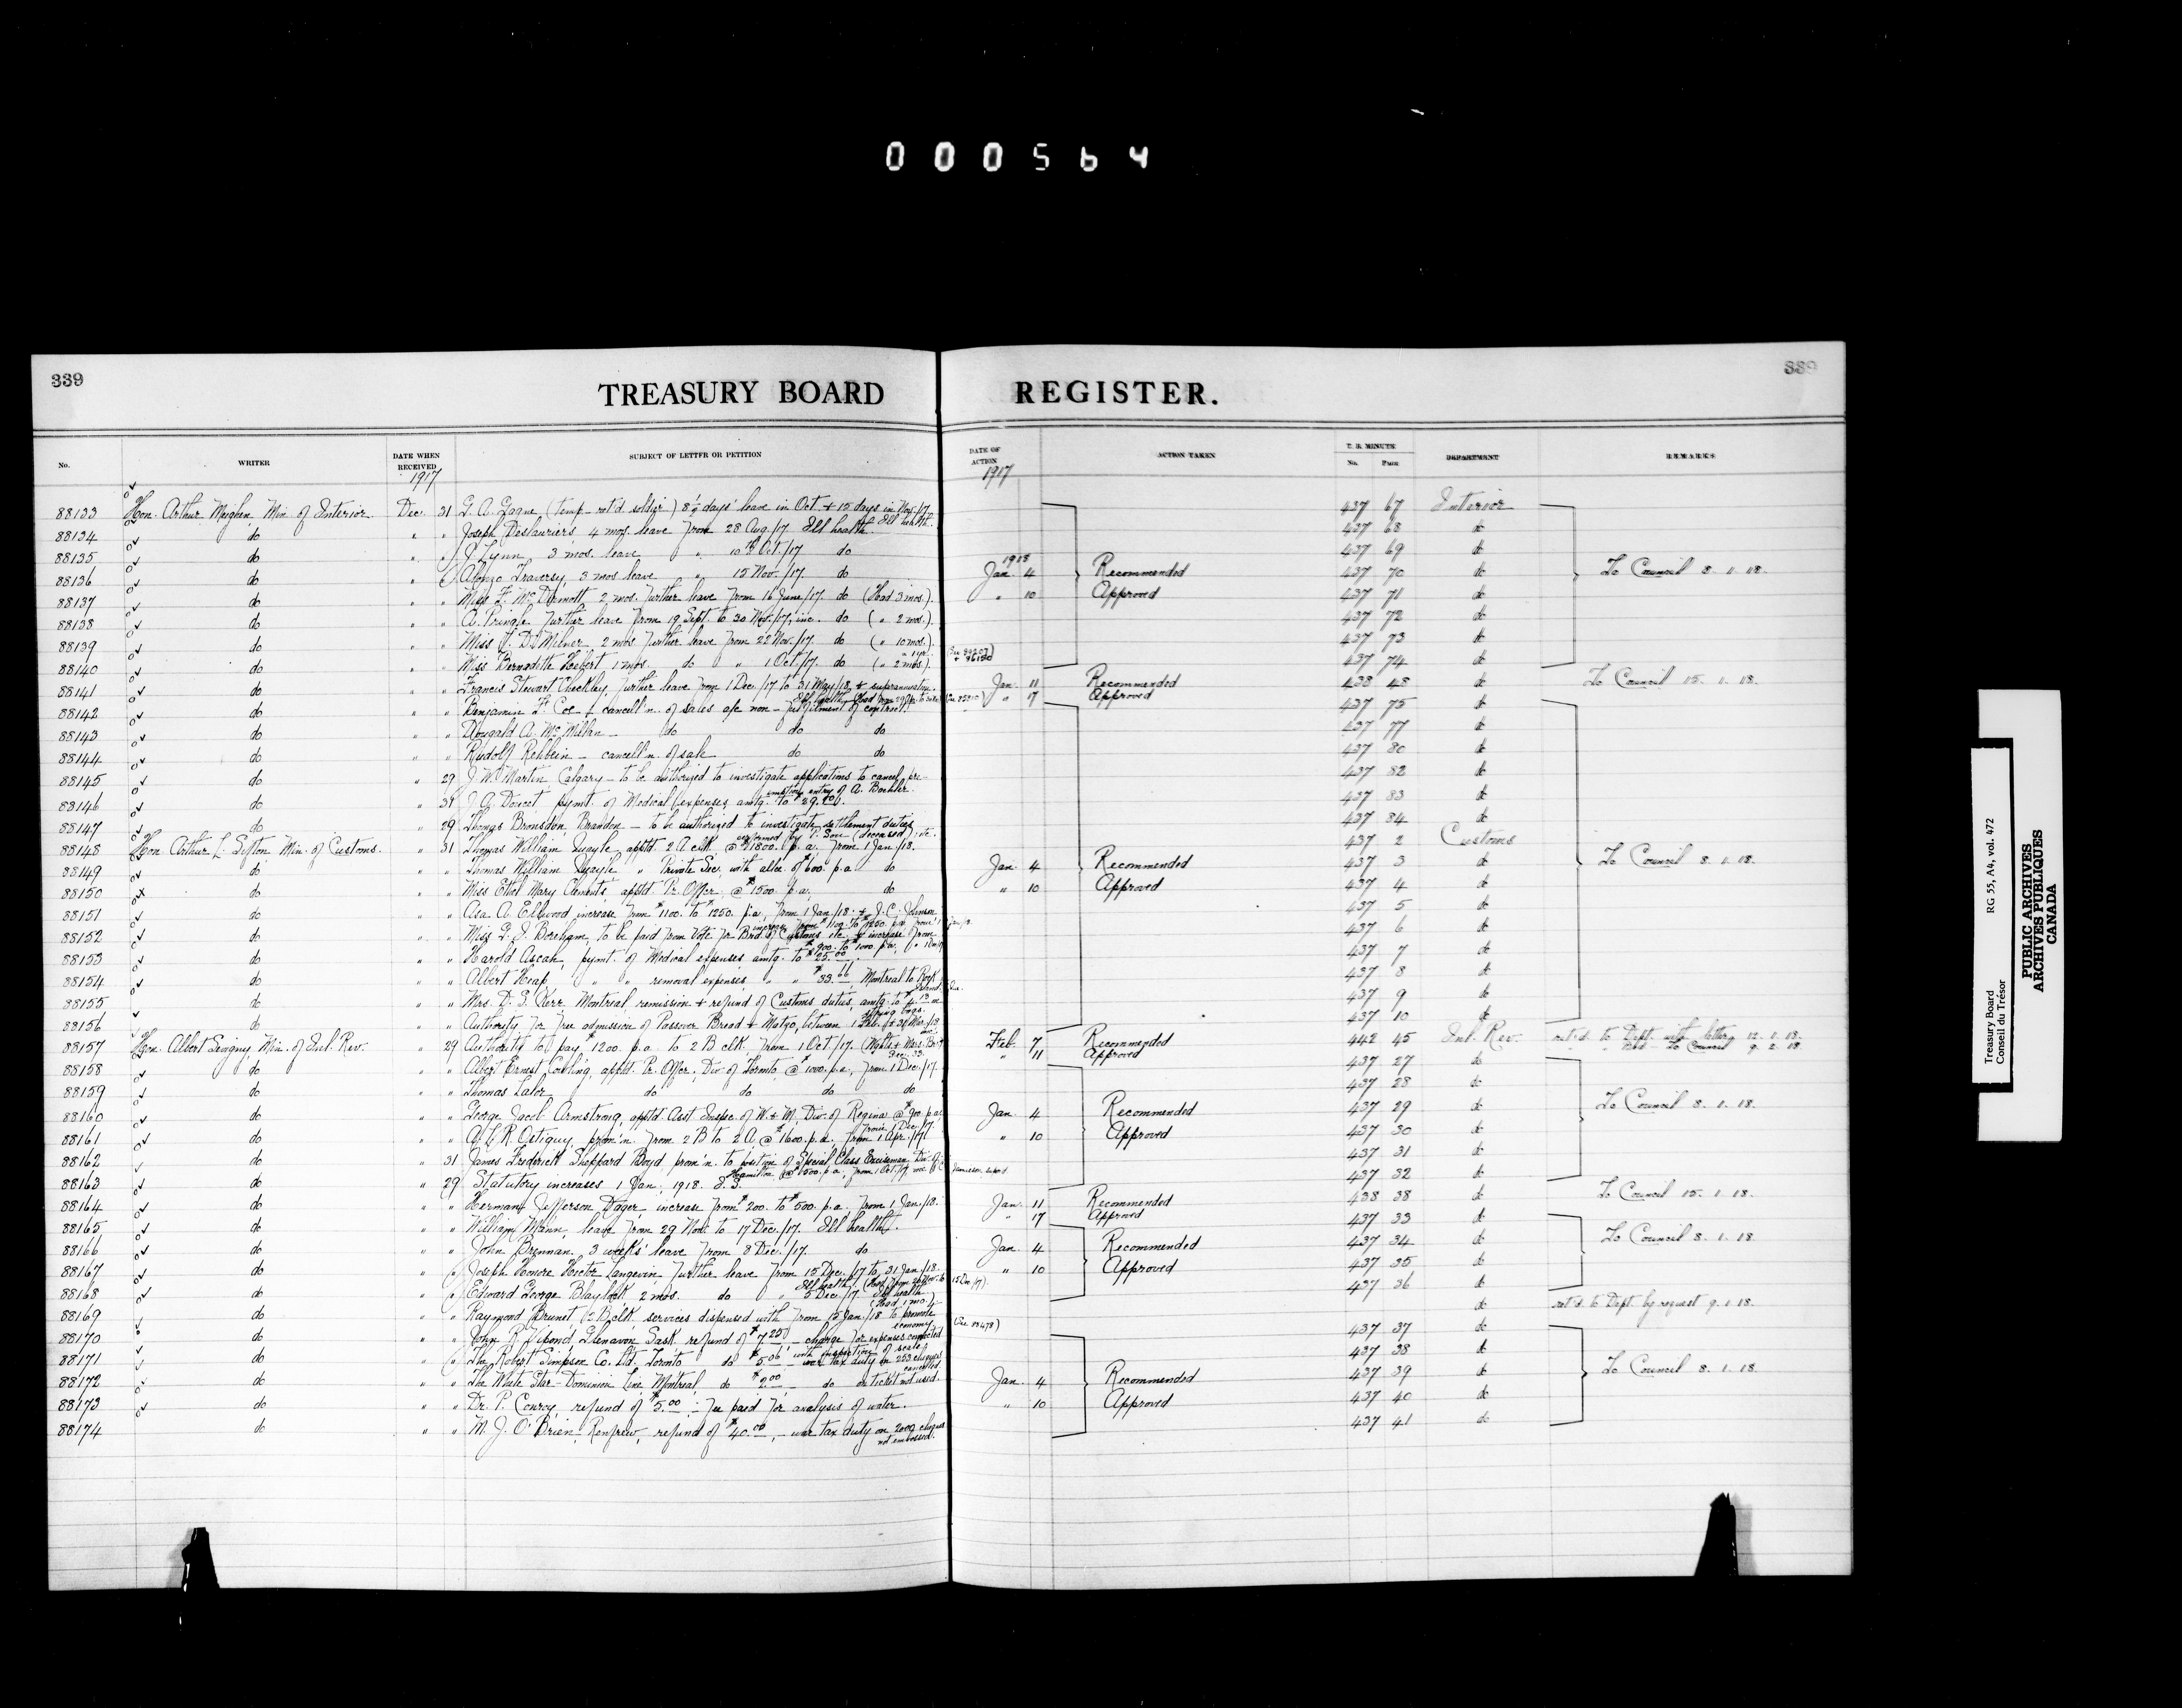 000564
339
TREASURY BOARD REGISTER.
339
No. WRITER DATE WHEN RECEIVED SUBJECT OF LETTER OR PETITION DATE OF ACTION ACTION TAKEN T. B. MINUTE No. PAGE DEPARTMENT REMARKS
1917 1917
88133 Hon. Arthur Meighen, Min. of Interior Dec. 31 G. A. Gagne (temp. ret'd. soldier) 8½ days' leave in Oct. + 15 days in Nov./17. Ill health. 437 67 Interior
88134 do " " Joseph Deslauriers, 4 mos. leave from 28 Aug./17. Ill health. 437 68 do
88135 do " " J. Lynn, 3 mos. leave " 10th Oct./17 do 437 69 do
88136 do " " Alonzo Traversy, 3 mos leave " 15 Nov./17. do 1918 Jan. 4 Recommended 437 70 do To Council 8. 1. 18.
88137 do " " Miss F. McDermott 2 mos. further leave from 16 June/17. do (Had 3 mos.) " 10 Approved 437 71 do
88138 do " " A. Pringle further leave from 19 Sept. to 30 Nov./17, inc. do (" 2 mos.) 437 72 do
88139 do " " Miss F. D. Milner 2 mos further leave from 22 Nov./17. do (" 10 mos.) 437 73 do
88140 do " " Miss Bernadette Hebert 1 mos. do " 1 Oct./17. do (" 2 mos.) 437 74 do
88141 do " " Francis Stewart Checkley, further leave from 1 Dec./17 to 31 May/18, + superannuation. Ill health Jan. 11 Recommended 438 48 do To Council 15. 1. 18.
" 17 Approved
88142 do " " Benjamin F. Coe - cancell'n. of sales a/c non-fulfilment of contract. 437 75 do
88143 do " " Dougald A. McMillan - do do do 437 77 do
88144 do " " Rudolf Rehbein - cancell'n. of sale do do 437 80 do
88145 do " 29 J. W. Martin, Calgary - to be authorized to investigate applications to cancel pre-emption entry of A. Boehler. 437 82 do
88146 do " 31 J. A. Doucet pymt. of Medical expenses amtg. to $29.00. 437 83 do
88147 do " 29 Thomas Bronsdon, Brandon - to be authorized to investigate settlement duties performed by (deceased), etc. 437 84 do
88148 Hon. Arthur L. Sifton Min. of Customs. " 31 Thomas William Quayle apptd. 2 A clk. @ $1800. p. a. from 1 Jan/18. 437 2 Customs
88149 do " " Thomas William Quayle " Private Sec. with allce. of $600. p.a. do Jan. 4 Recommended 437 3 do To Council 8. 1. 18.
88150 do " " Miss Ethel Mary Clements, apptd. Pr. Offcr. @ $1500. p.a. do " 10 Approved 437 4 do
88151 do " " Asa A. Ellwood increase from $1100. to $1250. p.a., from 1 Jan/18. + J. C. Johnson increase from $1100. to $1250. p.a. from 1 Jan/18. 437 5 do
88152 do " " Miss G. J. Boreham, to be paid from Vote for Brd. of Customs etc. + increase from $900. to $1000. p.a. 437 6 do
88153 do " " Harold Ascah, pymt. of Medical expenses amtg. to $25.00. 437 7 do
88154 do " " Albert Heap, " " removal expenses " " $33.66 Montreal to Rock Island, Que. 437 8 do
88155 do " " Mrs. D. S. Kerr Montreal, remission + refund of Customs duties, amtg. to 437 9 do
88156 do " " Authority for free admission of Passover Bread + Matzo, between 1 Feb. + 31 Mar./18 437 10 do
88157 Hon. Albert Sevigny, Min. of Inl. Rev. " 29 Authority to pay $1200. p.a. to 2 B clk. from 1 Oct./17. Feb. 7 Recommended 442 45 Inl. Rev. ret'd. to Dept. with letter 12. 1. 18.
" 11 Approved To Council 9. 2. 18.
88158 do " " Albert Ernest Cowling, apptd. Pr. Offcr. Div. of Toronto, @ $1000. p.a., from 1 Dec./17. 437 27 do
88159 do " " Thomas Lalor do do do do 437 28 do
88160 do " " George Jacob Armstrong, apptd. Asst. Inspec. of W. + M., Div. of Regina @ $900. p.a. from 1 Dec./17. Jan. 4 Recommended 437 29 do To Council 8. 1. 18.
88161 do " " A. L. R. Ostiguy, prom'n. from 2 B to 2 A @ $1600. p.a. from 1 Apr./17. " 10 Approved 437 30 do
88162 do " 31 James Frederick Sheppard Boyd prom'n. to position of Special Class Exciseman Div. of Hamilton @ $1500. p.a. from 1 Oct./17 437 31 do
88163 do " 29 Statutory increases 1 Jan. 1918. I. S. 437 32 do
88164 do " " Herman Jefferson Dager, increase from $200. to $500. p.a. from 1 Jan./18. Jan. 11 Recommended 438 38 do To Council 15. 1. 18.
" 17 Approved
88165 do " " William Mann, leave from 29 Nov. to 17 Dec./17. Ill health. 437 33 do
88166 do " " John Brennan, 3 weeks' leave from 8 Dec./17. do Jan. 4 Recommended 437 34 do To Council 8. 1. 18.
88167 do " " Joseph Honore Hector Langevin further leave from 15 Dec./17 to 31 Jan./18. Ill health " 10 Approved 437 35 do
88168 do " " Edward George Blaylock 2 mos. do " 5 Dec./17. Ill health (Had 1 mo.) 437 36 do
88169 do " " Raymond Brunet, 2 B clk. services dispensed with from 15 Jan./18 to promote economy do ret'd. to Dept. by request 9. 1. 18.
88170 do " " John R. Vipond, Glenavon Sask. refund of $7.25 - charge for expenses connected with inspection of scale. 437 37 do
88171 do " " The Robert Simpson Co. Ltd. Toronto do $5.06 - war tax duty on 253 cheques cancelled. 437 38 do
88172 do " " The White Star-Dominion Line, Montreal do $2.00 do on ticket not used. Jan. 4 Recommended 437 39 do To Council 8. 1. 18.
88173 do " " Dr. P. Conroy, refund of $5.00 - fee paid for analysis of water. " 10 Approved 437 40 do
88174 do " " M. J. O'Brien, Renfrew, refund of $40.00, - war tax duty on 2000 cheques not embossed. 437 41 do
Treasury Board RG 55, A4, vol. 472
Conseil du Trésor
PUBLIC ARCHIVES
ARCHIVES PUBLIQUES
CANADA